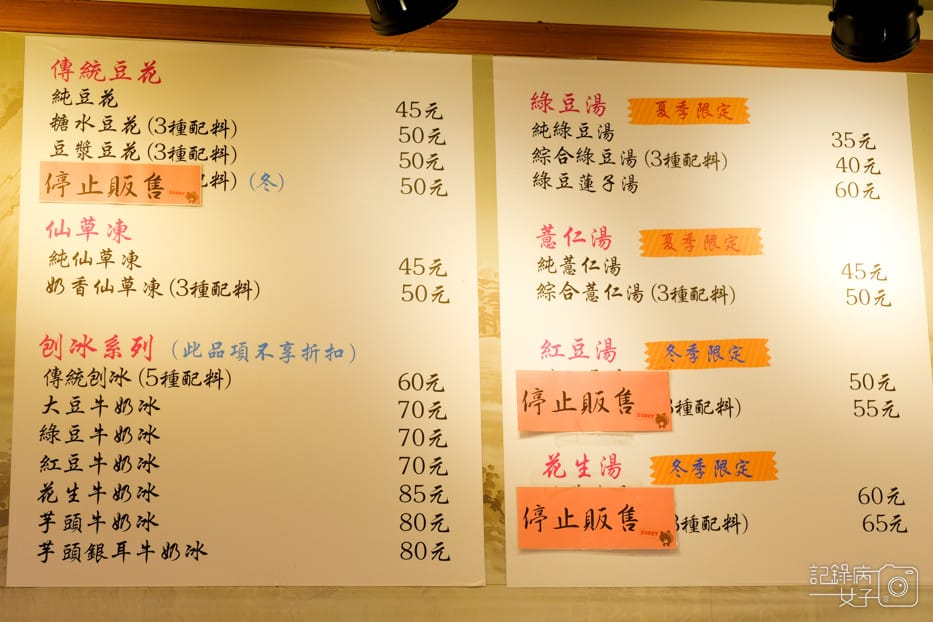 傳統豆花
純豆花 45元
糖水豆花(3種配料) 50元
豆漿豆花(3種配料) 50元
停止販售 SORRY 配料)(冬) 50元
仙草凍
純仙草凍 45元
奶香仙草凍(3種配料) 50元
刨冰系列(此品項不享折扣)
傳統刨冰(5種配料) 60元
大豆牛奶冰 70元
綠豆牛奶冰 70元
紅豆牛奶冰 70元
花生牛奶冰 85元
芋頭牛奶冰 80元
芋頭銀耳牛奶冰 80元
綠豆湯 夏季限定
純綠豆湯 35元
綜合綠豆湯(3種配料) 40元
綠豆蓮子湯 60元
薏仁湯 夏季限定
純薏仁湯 45元
綜合薏仁湯(3種配料) 50元
紅豆湯 冬季限定
50元
停止販售 SORRY 3種配料) 55元
花生湯 冬季限定
60元
停止販售 SORRY 3種配料) 65元
記錄病女子